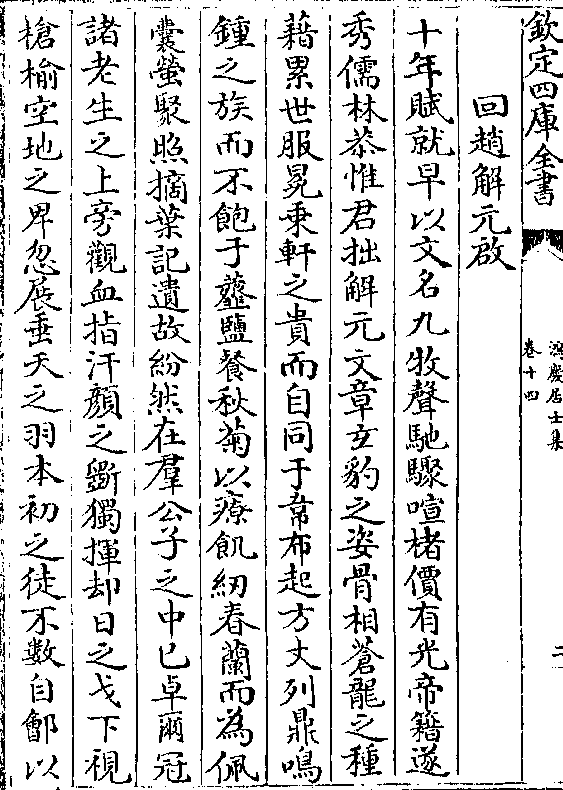 欽定四庫全書
鴻慶居士集
卷十四
二
回趙解元啟
十年賦就早以文名九牧聲馳驟喧楮價有光帝籍遂
秀儒林恭惟君拙解元文章玄豹之姿骨相蒼龍之種
藉累世服冕乗軒之貴而自同于韋布起方丈列鼎鳴
鍾之族而不飽于虀鹽餐秋菊以療飢紉春蘭而為佩
囊螢聚照摘葉記遺故紛然在羣公子之中已卓爾冠
諸老生之上旁觀血指汗顔之斵獨揮却日之戈下視
槍榆空地之卑忽展垂天之羽本初之徒不數自鄶以